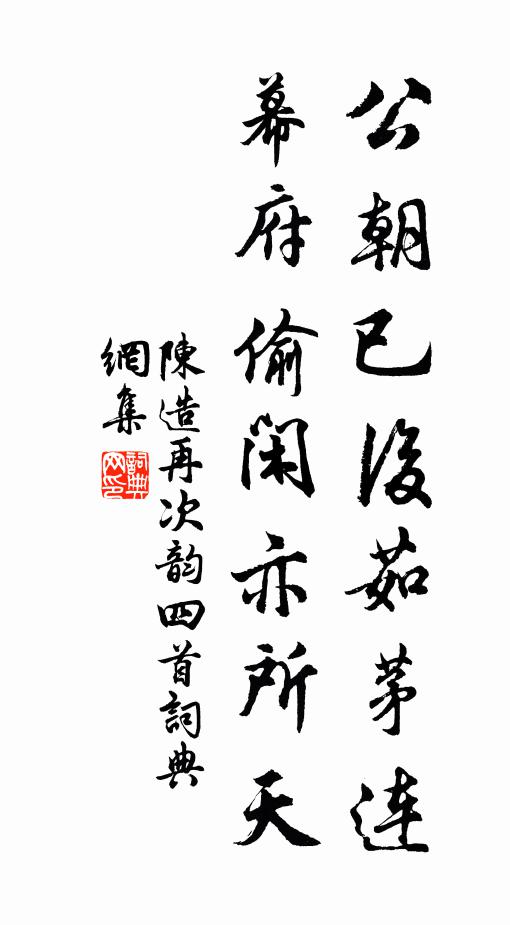 公朝已後茹茅連
幕府偷閑亦所天
陳造再次韵四首詞典
網集
詞典
网印